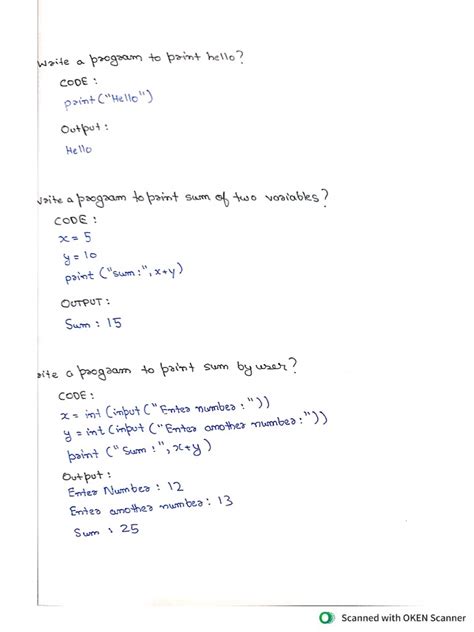 Write a program to print hello?
CODE :
print("Hello")
Output :
Hello
Write a program to print sum of two variables?
CODE :
x = 5
y = 10
print ("sum:", x+y)
OUTPUT :
Sum : 15
rite a program to print sum by user?
CODE:
x = int (input ("Enter number : "))
y = int (input ("Enter another number:"))
print ("Sum :", x+y)
Output :
Enter Number : 12
Enter another number : 13
Sum : 25
Scanned with OKEN Scanner